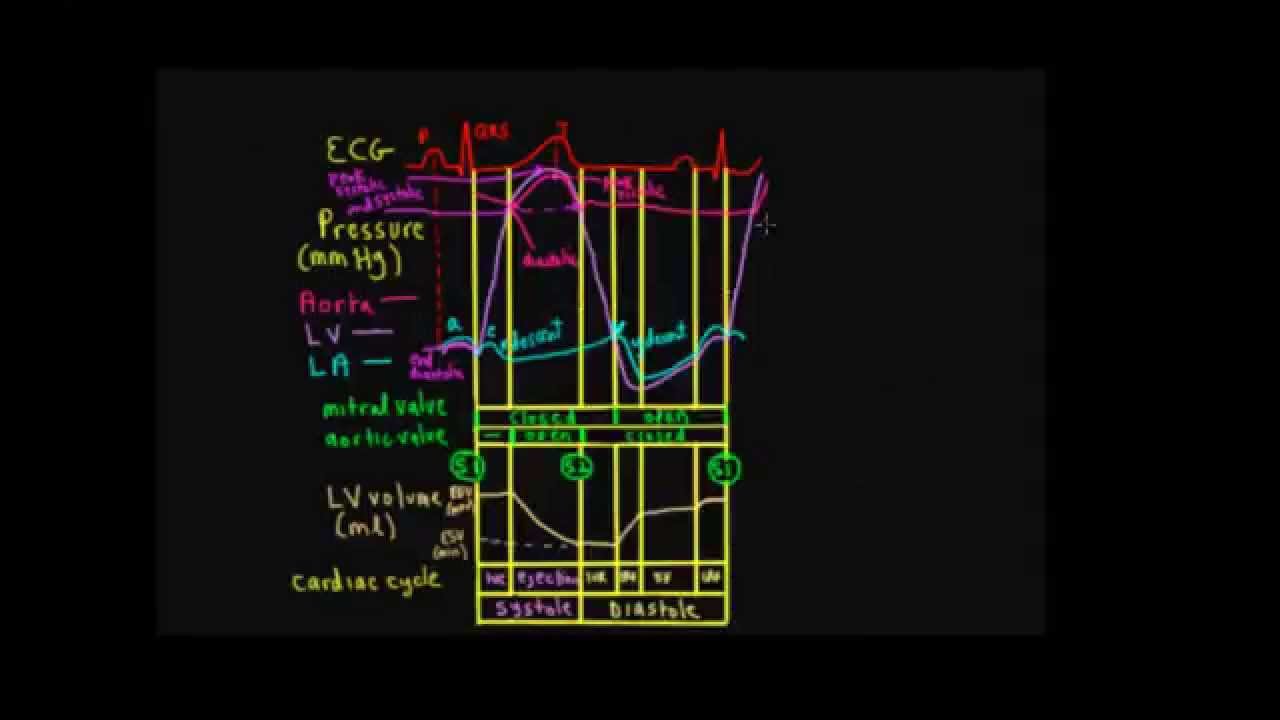 P QRS T
ECG
peak systolic
end systolic
peak systolic
Pressure
(mm Hg)
diastolic
Aorta
a c x descent v y descent
LV
LA
end diastolic
mitral valve closed open
aortic valve — open closed
S1 S2 S1
LV volume EDV
(ml)
ESV
(min)
cardiac cycle IVC ejection IVR
Systole Diastole